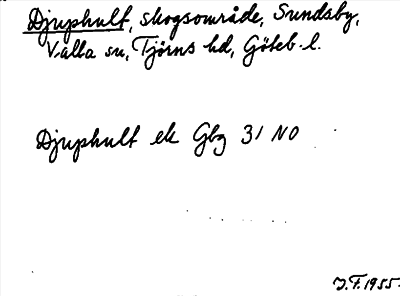 Djuphult, skogsområde, Sundsby,
Valla sn, Tjörns hd, Göteb. l.
Djuphult ek Gbg 31 NO
J.F. 1955.